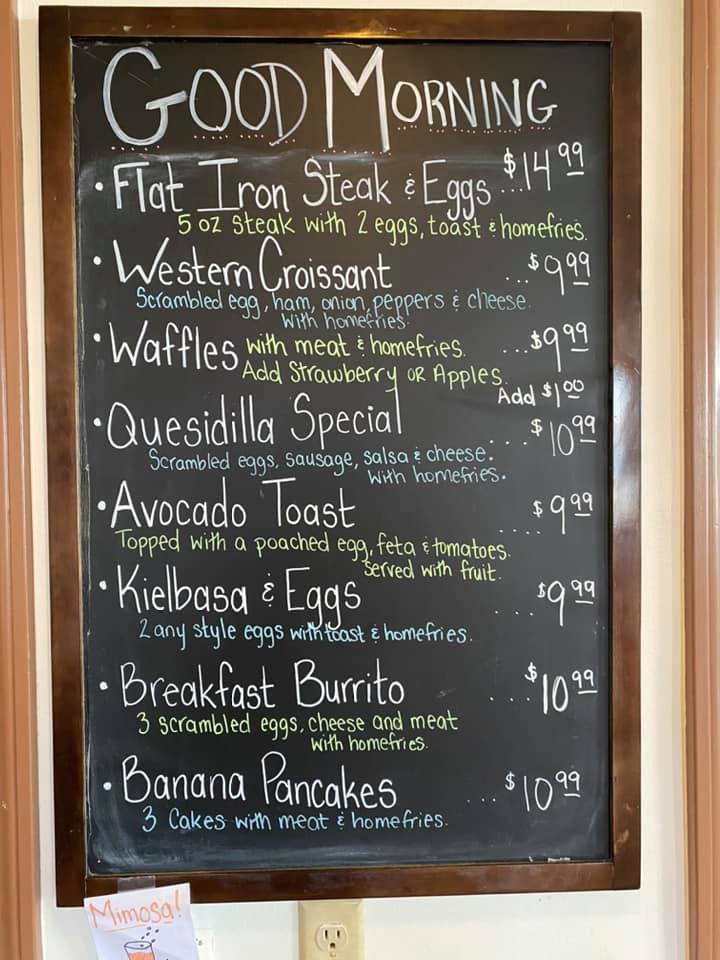 GOOD MORNING
• Flat Iron Steak & Eggs ... $14 99
5 oz steak with 2 eggs, toast & homefries.
• Western Croissant ... $9 99
Scrambled egg, ham, onion, peppers & cheese.
with homefries.
• Waffles with meat & homefries. ... $9 99
Add Strawberry OR Apples.
Add $1 00
• Quesidilla Special .... $10 99
Scrambled eggs, sausage, salsa & cheese.
with homefries.
• Avocado Toast .... $9 99
Topped with a poached egg, feta & tomatoes.
served with fruit.
• Kielbasa & Eggs .... $9 99
2 any style eggs with toast & homefries.
• Breakfast Burrito .... $10 99
3 scrambled eggs, cheese and meat
with homefries.
• Banana Pancakes ... $10 99
3 Cakes with meat & homefries.
Mimosa!